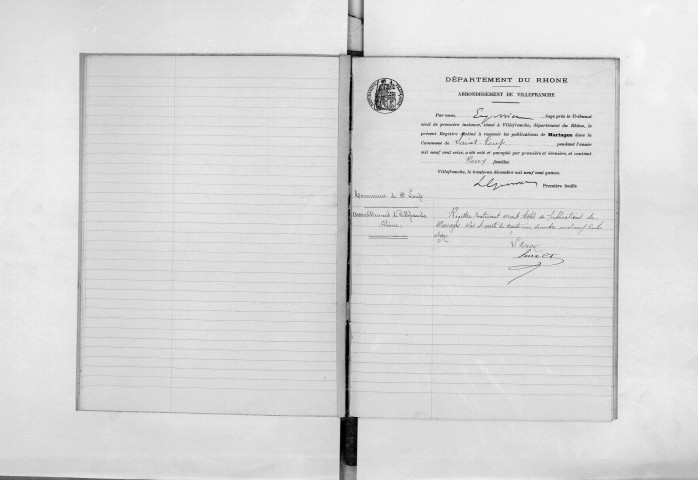 DÉPARTEMENT DU RHONE
ARRONDISSEMENT DE VILLEFRANCHE
Par nous, Juge près le Tribunal
civil de première instance, séant à Villefranche, département du Rhône, le
présent Registre destiné à recevoir les publications de Mariages dans la
Commune de Saint-Loup pendant l'année
mil neuf cent seize, a été coté et paraphé par première et dernière, et contient
Deux feuilles.
Villefranche, le trente-un décembre mil neuf cent quinze.
Première feuille
Commune de St Loup
Arrondissement de Villefranche
Rhône
Registre contenant actes de publications de
Mariages, clos et arrêté le trente un décembre mil neuf cent
seize
Le Maire